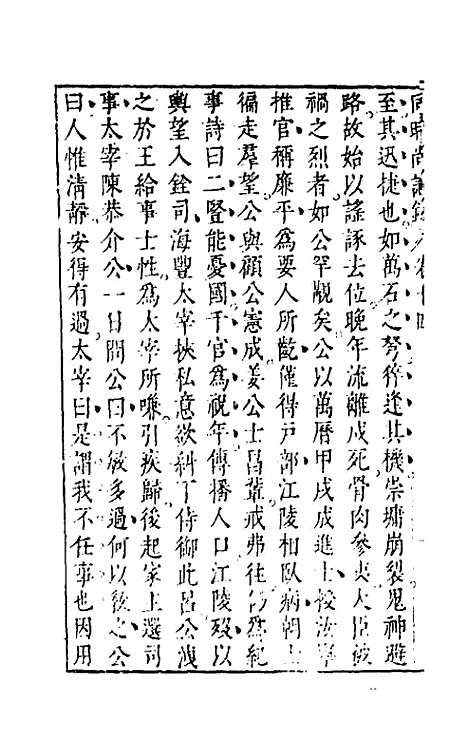 至其迅捷也如萬石之弩倅逢其機崇墉崩裂鬼神避
路故始以謠諑去位晚年流離戍死骨肉參夷大臣被
禍之烈者如公罕覯矣公以萬曆甲戌成進士授汝寧
推官稱廉平爲要人所齕僅得戶部江陵相臥病朝士
徧走羣望公與顧公憲成姜公士昌輩戒弗往爲紀
事詩曰二豎能憂國千官爲祝年傳播人口江陵歿以
輿望入銓司海豐太宰挾私意欲糾丁侍御此呂公洩
之於王給事士性爲太宰所嗛引疾歸後起家上選司
事太宰陳恭介公一日問公曰不敏多過何以後之公
曰人惟淸靜安得有過太宰曰是謂我不任事也因用